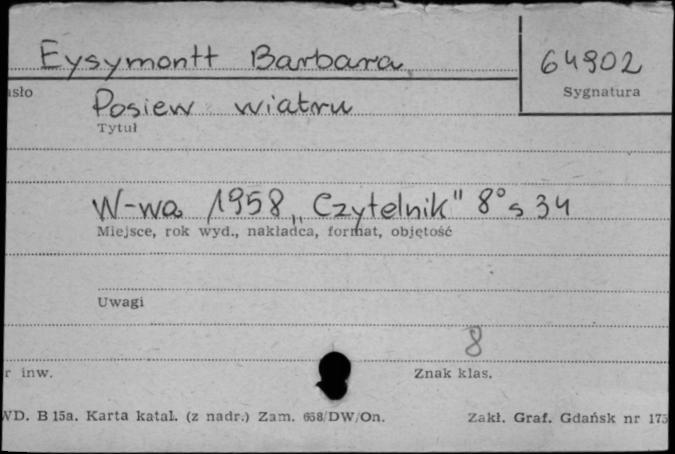 Eysymontt Barbara
64902
Sygnatura
Posiew wiatru
Tytuł
W-wa 1958 „Czytelnik" 8° s 34
Miejsce, rok wyd., nakładca, format, objętość
Uwagi
8
r inw.
Znak klas.
WD. B 15a. Karta katal. (z nadr.) Zam. 658/DW/On.
Zakł. Graf. Gdańsk nr 175